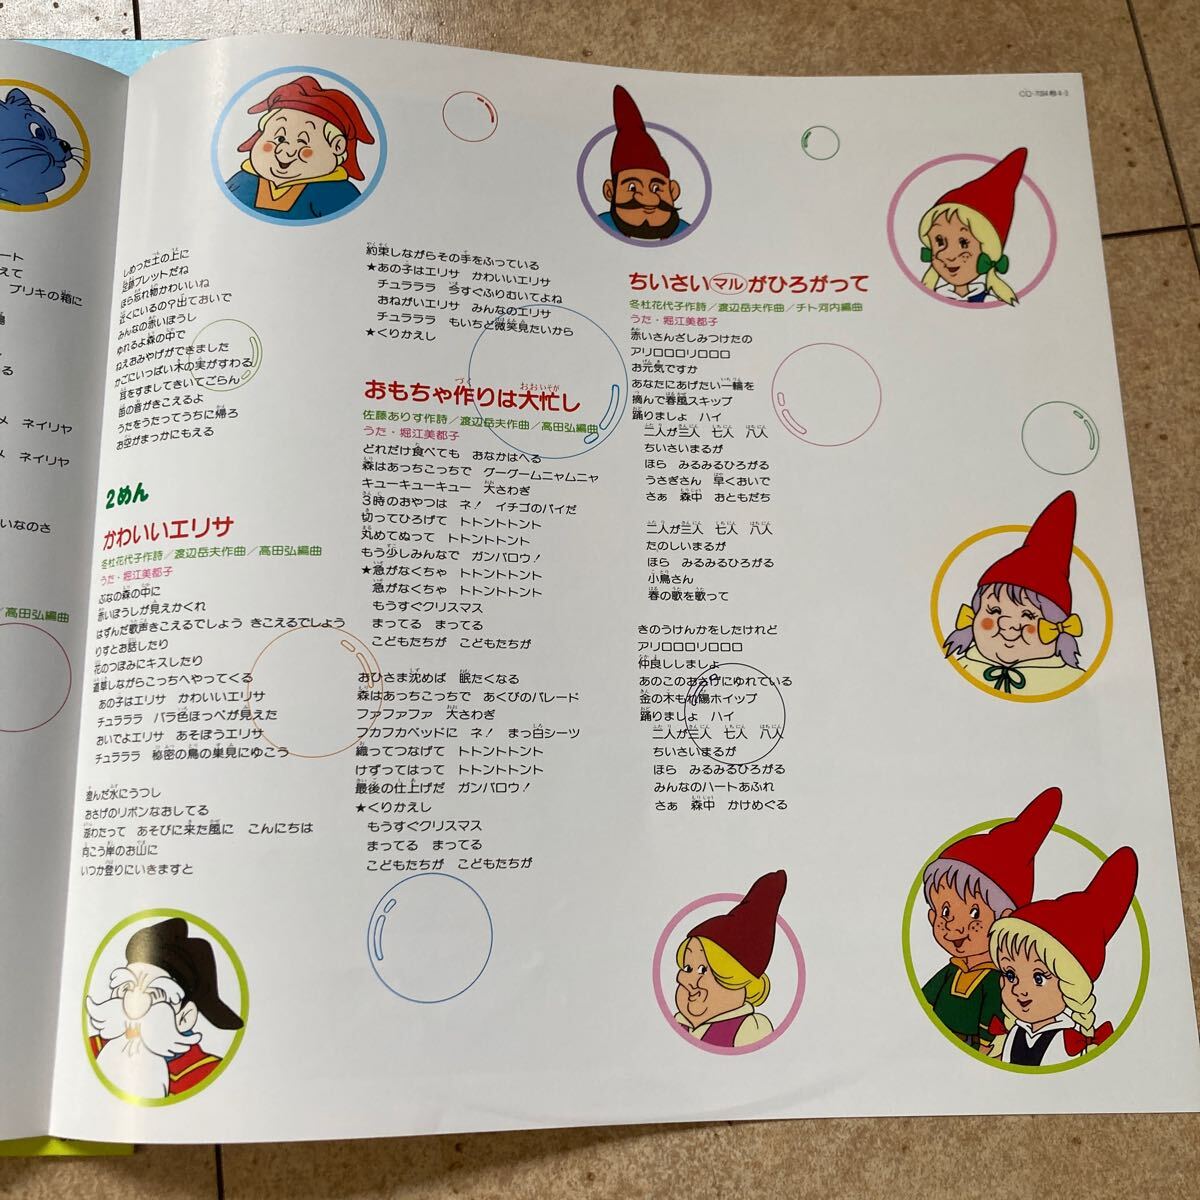 CQ-7084
ート
えて
ブリキの箱に
ネイリヤ
ネイリヤ
いなのさ
/高田弘編曲
しめった土の上に
足跡プレットだね
ほら忘れ物かわいいね
近くにいるの?出ておいで
みんなの赤いぼうし
ゆれるよ森の中で
ねえおみやげができました
かごにいっぱい木の実がすわる
耳をすましてきいてごらん
笛の音がきこえるよ
うたをうたってうちに帰ろ
お空がまっかにもえる
2めん
かわいいエリサ
冬杜花代子作詩/渡辺岳夫作曲/高田弘編曲
うた・堀江美都子
ぶなの森の中に
赤いぼうしが見えかくれ
はずんだ歌声きこえるでしょう きこえるでしょう
りすとお話したり
花のつぼみにキスしたり
道草しながらこっちへやってくる
あの子はエリサ かわいいエリサ
チュラララ バラ色ほっぺが見えた
おいでよエリサ あそぼうエリサ
チュラララ 秘密の鳥の巣見にゆこう
澄んだ水にうつし
おさげのリボンなおしてる
湖わたって あそびに来た風に こんにちは
向こう岸のお山に
いつか登りにいきますと
約束しながらその手をふっている
★あの子はエリサ かわいいエリサ
チュラララ 今すぐふりむいてよね
おねがいエリサ みんなのエリサ
チュラララ もいちど微笑見たいから
★くりかえし
おもちゃ作りは大忙し
佐藤ありす作詩/渡辺岳夫作曲/高田弘編曲
うた・堀江美都子
どれだけ食べても おなかはへる
森はあっちこっちで グーグームニャムニャ
キューキューキュー 大さわぎ
3時のおやつは ネ! イチゴのパイだ
切ってひろげて トトントトント
丸めてぬって トトントトント
もう少しみんなで ガンバロウ!
★急がなくちゃ トトントトント
急がなくちゃ トトントトント
もうすぐクリスマス
まってる まってる
こどもたちが こどもたちが
おひさま沈めば 眠たくなる
森はあっちこっちで あくびのパレード
ファファファ 大さわぎ
フカフカベッドに ネ! まっ白シーツ
織ってつなげて トトントトント
けずってはって トトントトント
最後の仕上げだ ガンバロウ!
★くりかえし
もうすぐクリスマス
まってる まってる
こどもたちが こどもたちが
ちいさいマルがひろがって
冬杜花代子作詩/渡辺岳夫作曲/チト河内編曲
うた・堀江美都子
赤いさんざしみつけたの
アリロロロリロロロ
お元気ですか
あなたにあげたい一輪を
摘んで春風スキップ
踊りましょ ハイ
二人が三人 七人 八人
ちいさいまるが
ほら みるみるひろがる
うさぎさん 早くおいで
さぁ 森中 おともだち
二人が三人 七人 八人
たのしいまるが
ほら みるみるひろがる
小鳥さん
春の歌を歌って
きのうけんかをしたけれど
アリロロロリロロロ
仲良ししましょ
あのこのおさげにゆれている
金の木もれ陽ホイップ
踊りましょ ハイ
二人が三人 七人 八人
ちいさいまるが
ほら みるみるひろがる
みんなのハートあふれ
さぁ 森中 かけめぐる